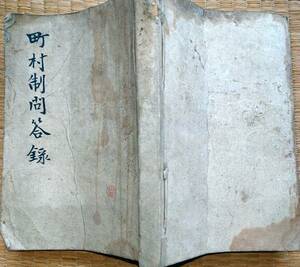 町村制問答錄